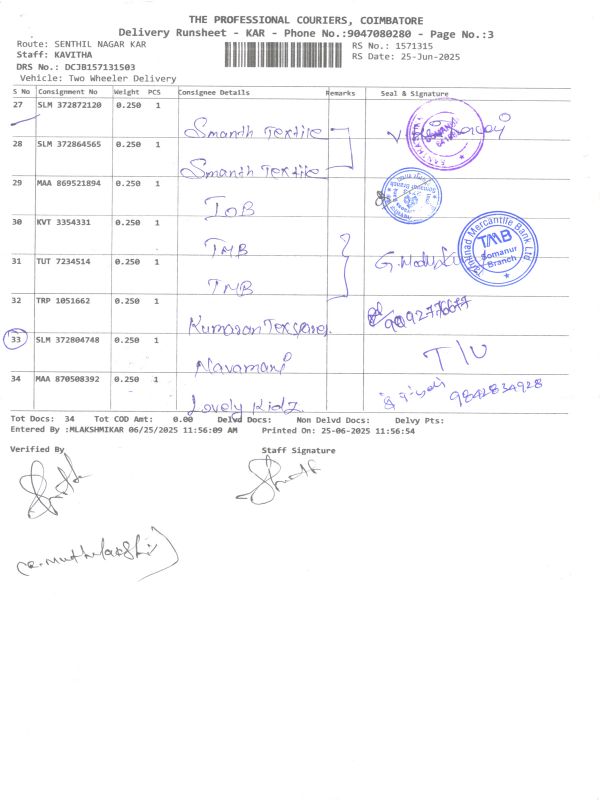 THE PROFESSIONAL COURIERS, COIMBATORE
Delivery Runsheet - KAR - Phone No.:9047080280 - Page No.:3
Route: SENTHIL NAGAR KAR
RS No.: 1571315
Staff: KAVITHA
RS Date: 25-Jun-2025
DRS No.: DCJB157131503
Vehicle: Two Wheeler Delivery
S No Consignment No Weight PCS Consignee Details Remarks Seal & Signature
27 SLM 372872120 0.250 1
Smanth Textile
28 SLM 372864565 0.250 1
Smanth Textile
29 MAA 869521894 0.250 1
IOB
30 KVT 3354331 0.250 1
TMB
TMB
Somanur
Branch
31 TUT 7234514 0.250 1
TMB
32 TRP 1051662 0.250 1
Kumaran
33 SLM 372804748 0.250 1
T/U
Navamani
34 MAA 870508392 0.250 1
9842834928
Lovely Kidz
Tot Docs: 34 Tot COD Amt: 0.00 Delvd Docs: Non Delvd Docs: Delvy Pts:
Entered By :MLAKSHMIKAR 06/25/2025 11:56:09 AM Printed On: 25-06-2025 11:56:54
Verified By
Staff Signature